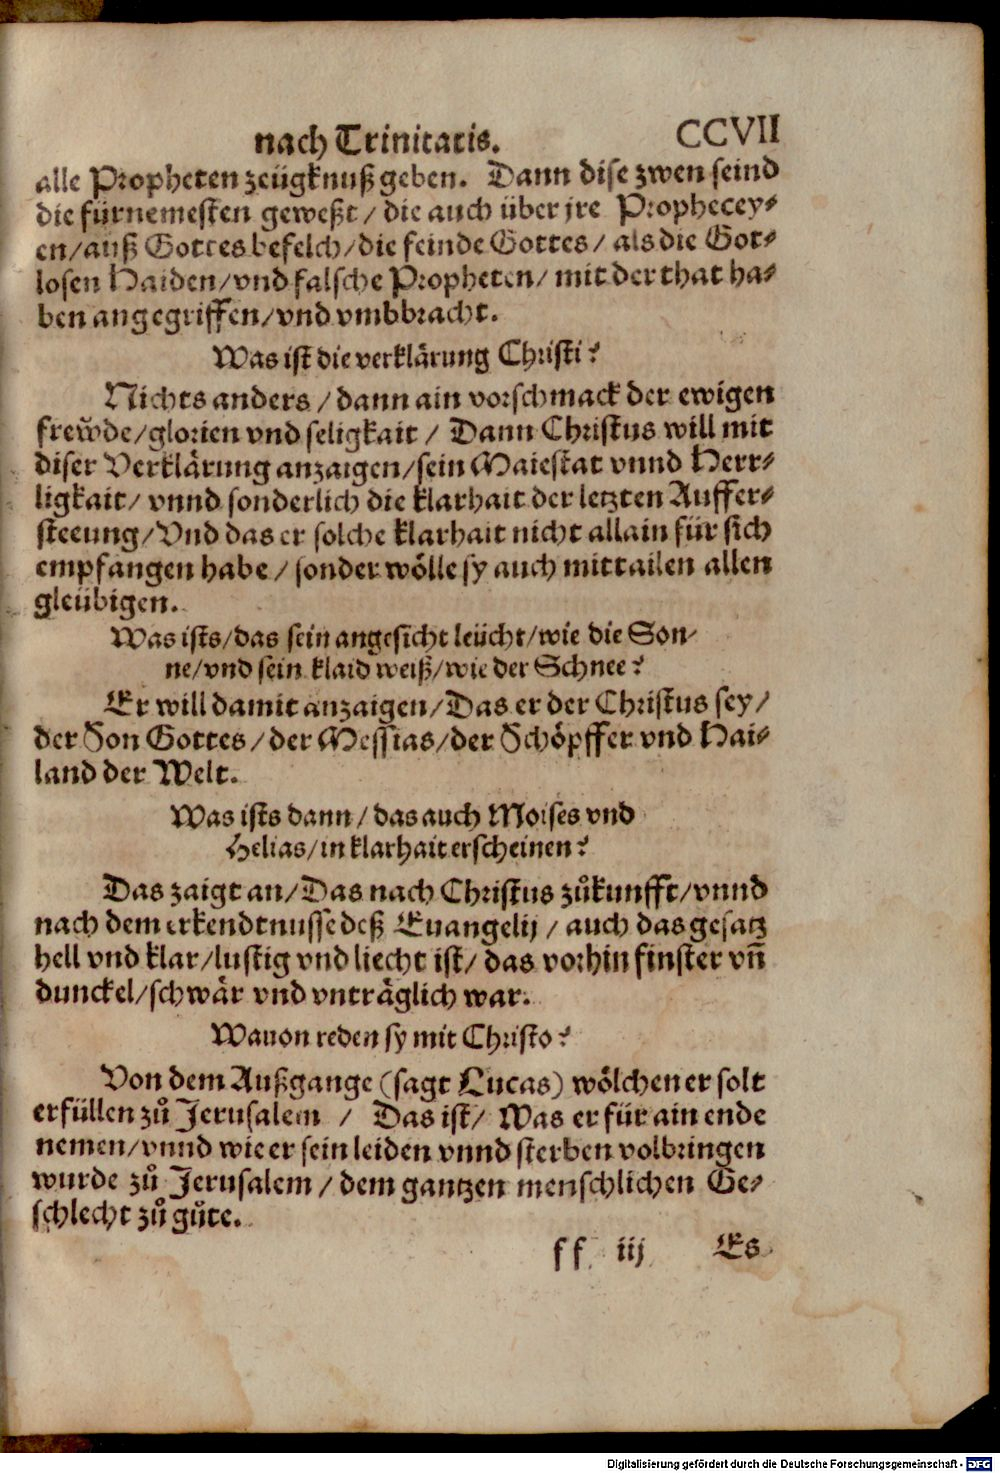 nach Trinitatis. CCVII
alle Propheten zeügknuß geben. Dann dise zwen seind
die fürnemesten geweßt / die auch über jre Prophecey⸗
en/auß Gottes befelch/die feinde Gottes/ als die Got⸗
losen Haiden/vnd falsche Propheten/ mit der that ha⸗
ben angegriffen/vnd vmbbracht.
Was ist die verklärung Christi?
Nichts anders / dann ain vorschmack der ewigen
frewde/glorien vnd seligkait / Dann Christus will mit
diser Verklärung anzaigen/sein Maiestat vnnd Herr⸗
ligkait/ vnnd sonderlich die klarhait der letzten Auffer⸗
steeung/Vnd das er solche klarhait nicht allain für sich
empfangen habe / sonder wölle sy auch mittailen allen
gleübigen.
Was ists/das sein angesicht leücht/wie die Son⸗
ne/vnd sein klaid weiß/wie der Schnee?
Er will damit anzaigen/Das er der Christus sey/
der Son Gottes / der Messias/der Schöpffer vnd Hai⸗
land der Welt.
Was ists dann / das auch Moises vnd
Helias/in klarhait erscheinen?
Das zaigt an/Das nach Christus zůkunfft/vnnd
nach dem erkendtnusse deß Euangelij / auch das gesatz
hell vnd klar/lustig vnd liecht ist/ das vorhin finster vñ
dunckel/schwär vnd vnträglich war.
Wauon reden sy mit Christo?
Von dem Außgange (sagt Lucas) wölchen er solt
erfüllen zů Jerusalem / Das ist/ Was er für ain ende
nemen/vnnd wie er sein leiden vnnd sterben volbringen
wurde zů Jerusalem / dem gantzen menschlichen Ge⸗
schlecht zů gůte.
ff iij Es
Digitalisierung gefördert durch die Deutsche Forschungsgemeinschaft - DFG